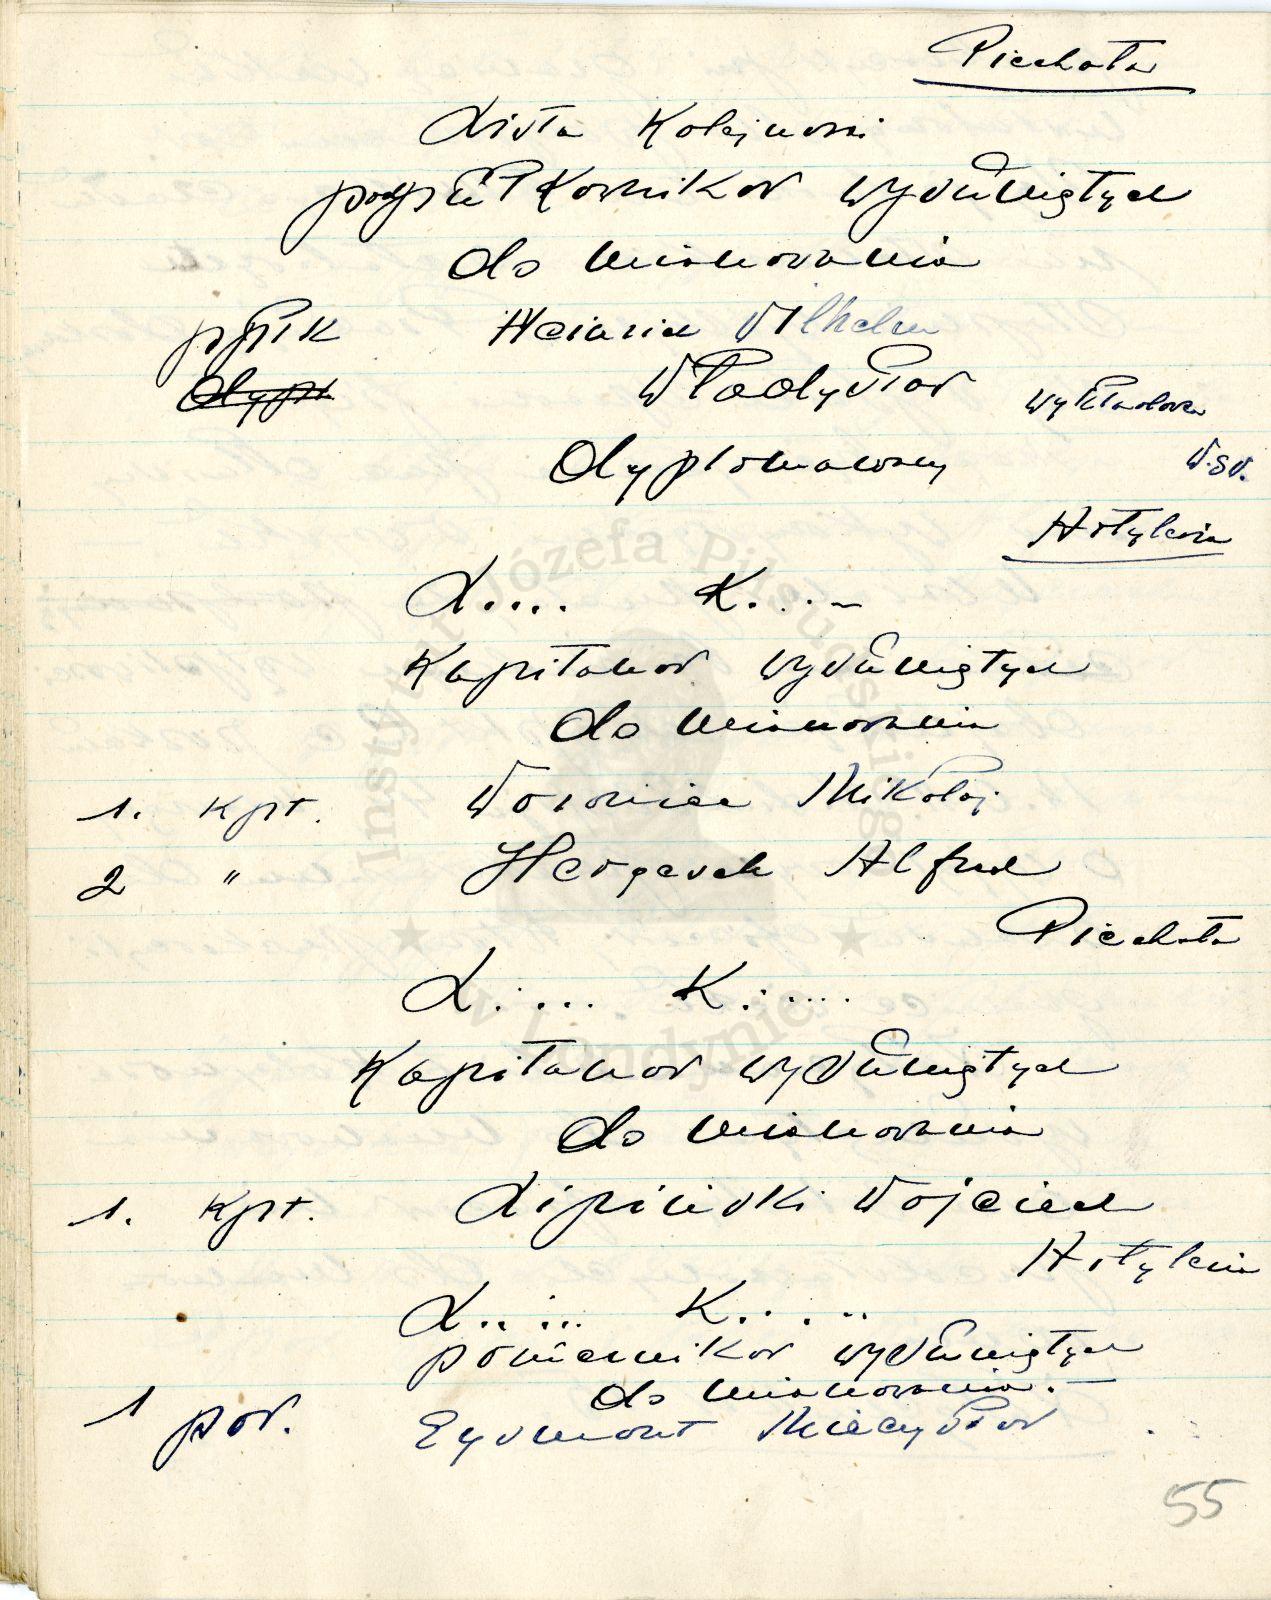 Piechota
Lista Kolejności
podpułkowników wysuniętych
do mianowania
ppłk Heinrich Wilhelm
dypl. Władysław wykładowca
dyplomowany W.S.W.
Artyleria
L.... K....
Kapitanów wysuniętych
do mianowania
1. Kpt. Woroniec Mikołaj
2 " Alfred
Piechota
L..... K......
Kapitanów wysuniętych
do mianowania
1. Kpt. Lipiński Wojciech
Artyleria
L..... K.....
poruczników wysuniętych
do mianowania.-
1 por. Zygmont Mieczysław
55
Instytut Józefa Piłsudskiego
w Londynie